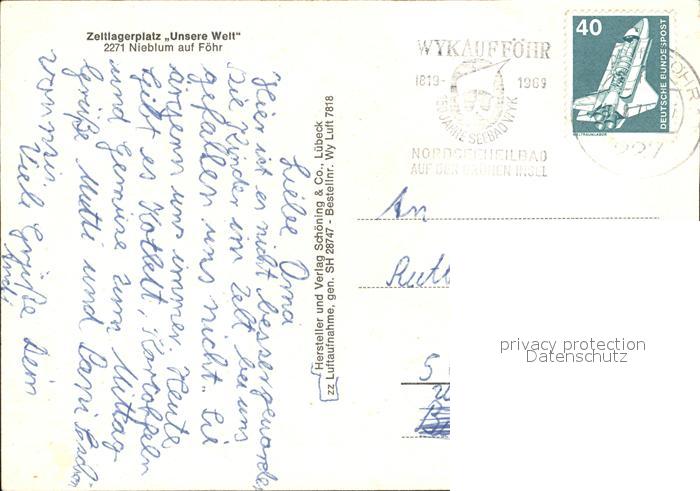 Zeltlagerplatz „Unsere Welt"
2271 Nieblum auf Föhr
Liebe Oma
Hier ist es nicht besser geworden
Die Kinder im Zelt bei uns
gefallen uns nicht. Sie
ärgern uns immer. Heute
gibt es Kotlett, Kartoffeln
und Gemüse zum Mittag
Grüße Mutti und Papi
von mir.
Viele Grüße Dein
Andi
Hersteller und Verlag Schöning & Co., Lübeck
zz Luftaufnahme, gen. SH 28747 - Bestellnr. Wy Luft 7818
WYK AUF FÖHR
1819- 1969
150 JAHRE SEEBAD WYK
NORDSEEHEILBAD
AUF DER GRÜNEN INSEL
40
DEUTSCHE BUNDESPOST
WELTRAUMLABOR
An
5
privacy protection
Datenschutz